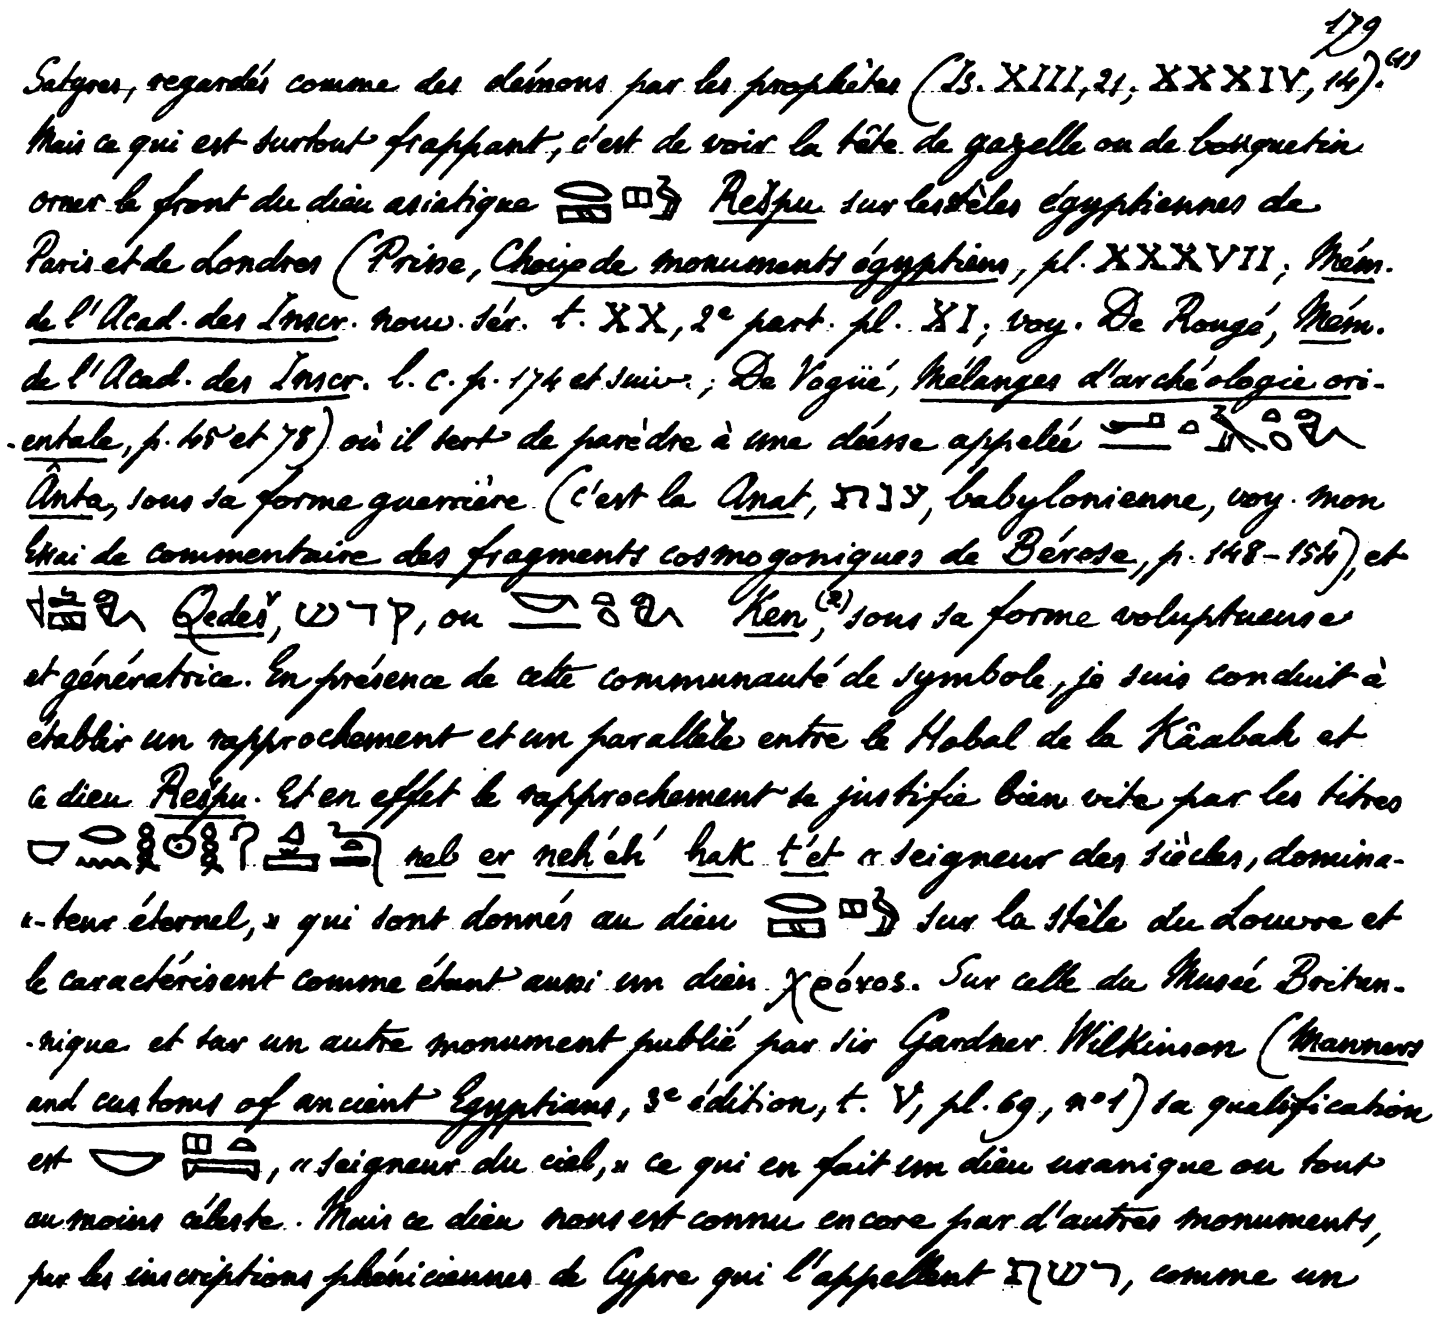 179
Satyres, regardés comme des démons par les prophètes (Is. XIII, 21; XXXIV, 14).(1)
Mais ce qui est surtout frappant, c'est de voir la tête de gazelle ou de bouquetin
orner le front du dieu asiatique Rešpu sur les stèles égyptiennes de
Paris et de Londres (Prisse, Choix de monuments égyptiens, pl. XXXVII; Mém.
de l'Acad. des Inscr. nouv. sér. t. XX, 2e part. pl. XI; voy. De Rougé, Mém.
de l'Acad. des Inscr. l. c. p. 174 et suiv.; De Vogüé, Mélanges d'archéologie ori-
-entale, p. 45 et 78) où il sert de parèdre à une déesse appelée
Ânta, sous sa forme guerrière (c'est la Anat, ענת, babylonienne, voy. mon
Essai de commentaire des fragments cosmogoniques de Bérose, p. 148-154), et
Qedeš, קדש, ou Ken,(2) sous sa forme voluptueuse
et génératrice. En présence de cette communauté de symbole, je suis conduit à
établir un rapprochement et un parallèle entre le Hobal de la Kâabah et
ce dieu Rešpu. Et en effet le rapprochement se justifie bien vite par les titres
neb er neh'éh' hak t'et « seigneur des siècles, domina-
«-teur éternel, » qui sont donnés au dieu sur la stèle du Louvre et
le caractérisent comme étant aussi un dieu χρόνος. Sur celle du Musée Britan-
-nique et sur un autre monument publié par sir Gardner Wilkinson (Manners
and customs of ancient Egyptians, 3e édition, t. V, pl. 69, n° 1) sa qualification
est , « seigneur du ciel, » ce qui en fait un dieu uranique ou tout
au moins céleste. Mais ce dieu nous est connu encore par d'autres monuments,
par les inscriptions phéniciennes de Cypre qui l'appellent רשף, comme un